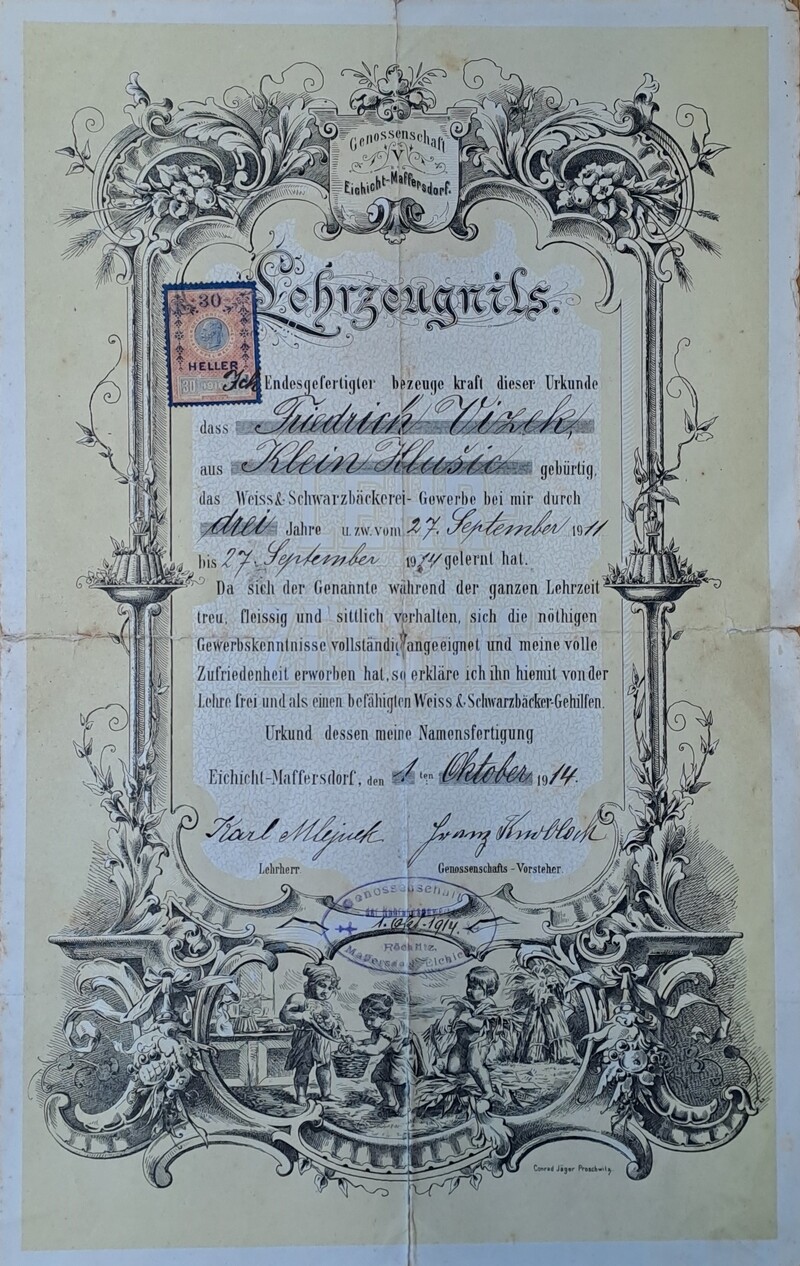 Genossenschaft
V
Eichicht-Maffersdorf.
Lehrzeugnils.
30
HELLER
30
Ich Endesgefertigter bezeuge kraft dieser Urkunde
dass Friedrich Vizek,
aus Klein Hlušic gebürtig,
das Weiss & Schwarzbäckerei-Gewerbe bei mir durch
drei Jahre u. zw. vom 27. September 1911
bis 27. September 1914 gelernt hat.
Da sich der Genannte während der ganzen Lehrzeit
treu, fleissig und sittlich verhalten, sich die nöthigen
Gewerbskenntnisse vollständig angeeignet und meine volle
Zufriedenheit erworben hat, so erkläre ich ihn hiemit von der
Lehre frei und als einen befähigten Weiss & Schwarzbäcker-Gehilfen.
Urkund dessen meine Namensfertigung
Eichicht-Maffersdorf, den 1 ten Oktober 1914.
Karl Mlejnek Franz Knobloch
Lehrherr Genossenschafts-Vorsteher.
Genossenschaft
1. Okt. 1914.
Röchlitz.
Conrad Jäger Proschwitz.